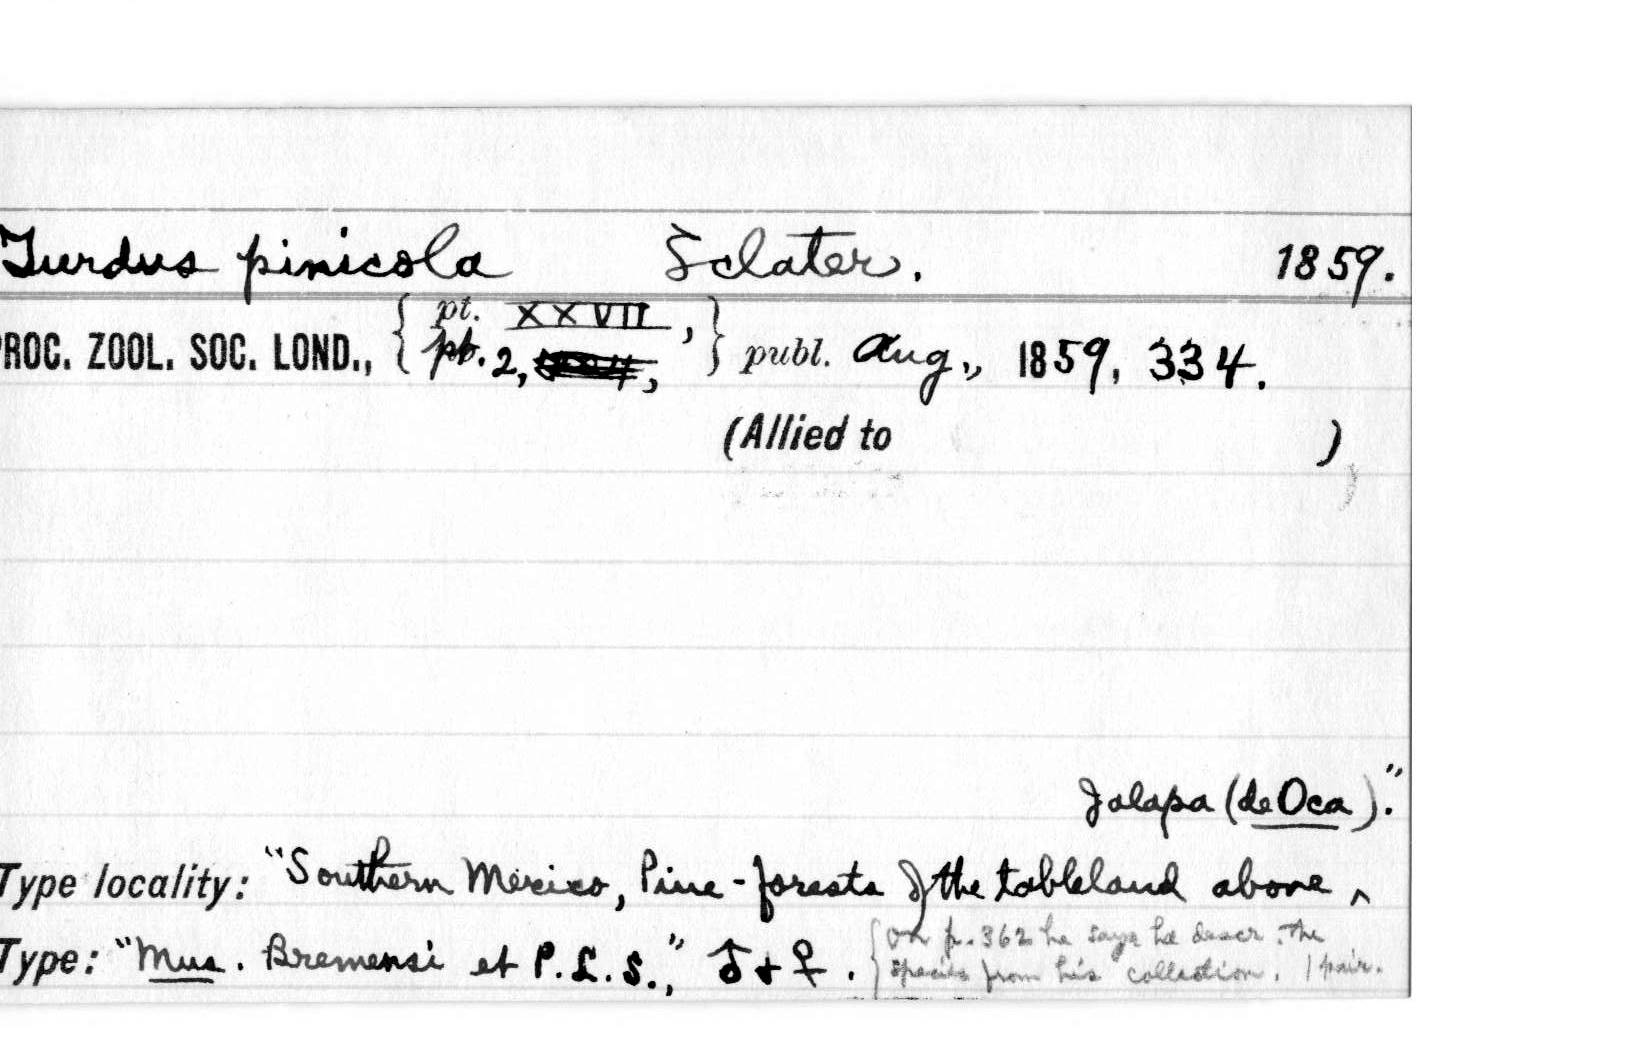 Turdus pinicola Sclater. 1859.
PROC. ZOOL. SOC. LOND., { pt. XXVII, pt. 2, } publ. Aug., 1859, 334.
(Allied to )
Jalapa (de Oca)."
Type locality: "Southern Mexico, Pine-forests of the tableland above ^
Type: "Mus. Bremensi et P. L. S.," ♂ + ♀. { On p. 362 he says he descr. the
species from his collection. 1 pair.